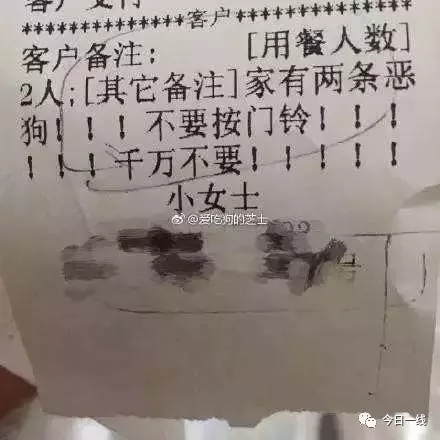 ************客户************
客户备注： [用餐人数]
2人;[其它备注]家有两条恶
狗！！！不要按门铃！！！
！！！千万不要！！！！！
小女士
@爱吃狗的芝士
今日一线